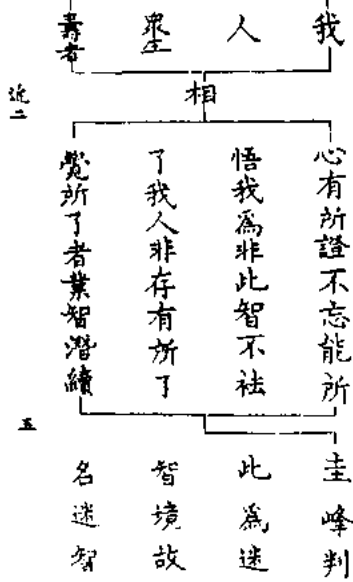 我
人
眾生
壽者
相
心有所證不忘能所
悟我為非此智不祛
了我人非存有所了
覺所了者業智潛續
圭峰判
此為迷
智境故
名迷智
近二
五